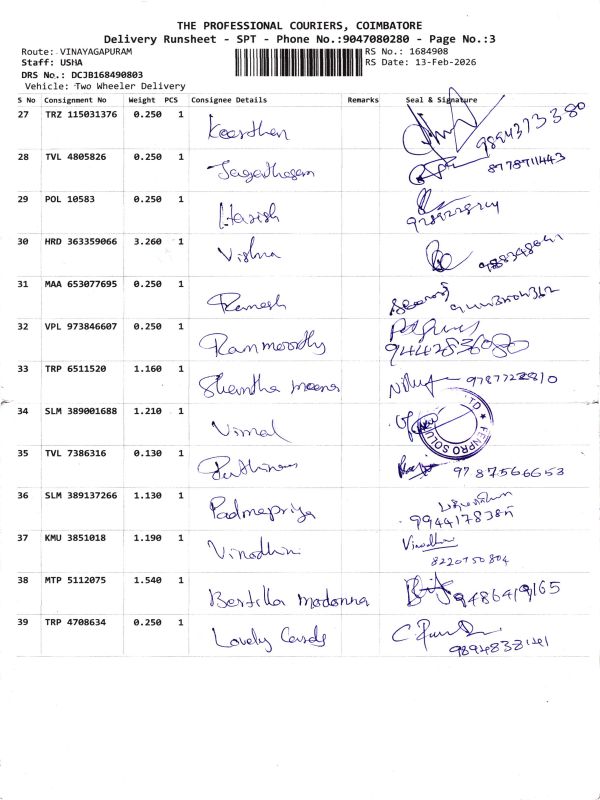 THE PROFESSIONAL COURIERS, COIMBATORE
Delivery Runsheet - SPT - Phone No.:9047080280 - Page No.:3
Route: VINAYAGAPURAM RS No.: 1684908
Staff: USHA RS Date: 13-Feb-2026
DRS No.: DCJB168490803
Vehicle: Two Wheeler Delivery
S No Consignment No Weight PCS Consignee Details Remarks Seal & Signature
27 TRZ 115031376 0.250 1 Keerthen 9894373380
28 TVL 4805826 0.250 1 8778711443
29 POL 10583 0.250 1 Harish
30 HRD 363359066 3.260 1 Vishna
31 MAA 653077695 0.250 1 Ramesh
32 VPL 973846607 0.250 1 Rammoorthy 9442836080
33 TRP 6511520 1.160 1 Shantha meena
34 SLM 389001688 1.210 1 Vimal FENPRO SOLU
35 TVL 7386316 0.130 1 9787566653
36 SLM 389137266 1.130 1 Padmapriya
37 KMU 3851018 1.190 1 Vinodhini Vinodhini 8220750804
38 MTP 5112075 1.540 1 Bertilla madonna
39 TRP 4708634 0.250 1 Lovely Cards